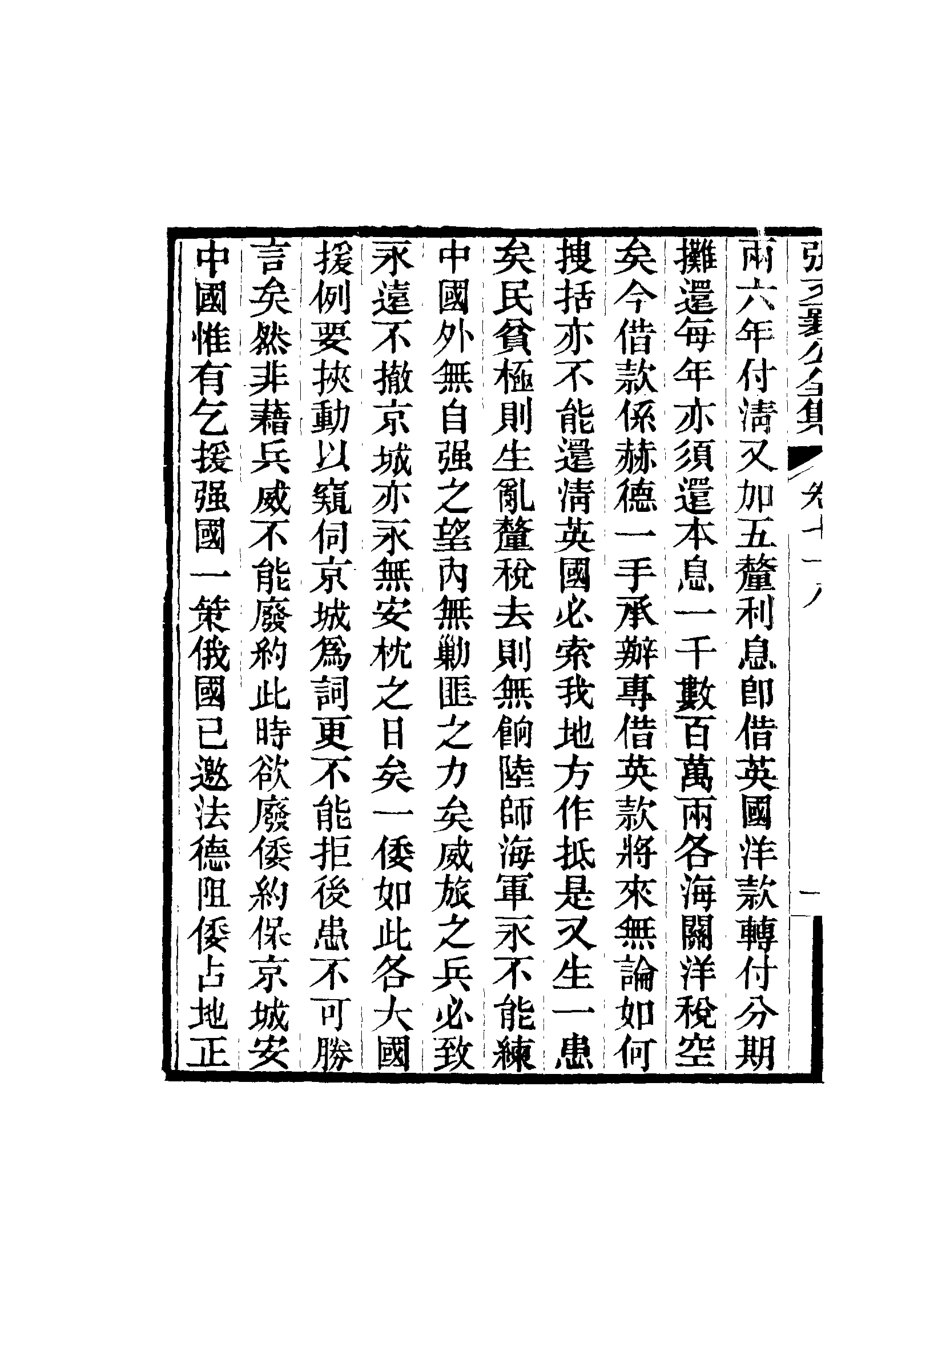 張文襄公全集 卷七十八 一
兩六年付淸又加五釐利息卽借英國洋款轉付分期
攤還每年亦須還本息一千數百萬兩各海關洋稅空
矣今借款係赫德一手承辦專借英款將來無論如何
搜括亦不能還淸英國必索我地方作抵是又生一患
矣民貧極則生亂釐稅去則無餉陸師海軍永不能練
中國外無自强之望內無勦匪之力矣威旅之兵必致
永遠不撤京城亦永無安枕之日矣一倭如此各大國
援例要挾動以窺伺京城爲詞更不能拒後患不可勝
言矣然非藉兵威不能廢約此時欲廢倭約保京城安
中國惟有乞援强國一策俄國已邀法德阻倭占地正